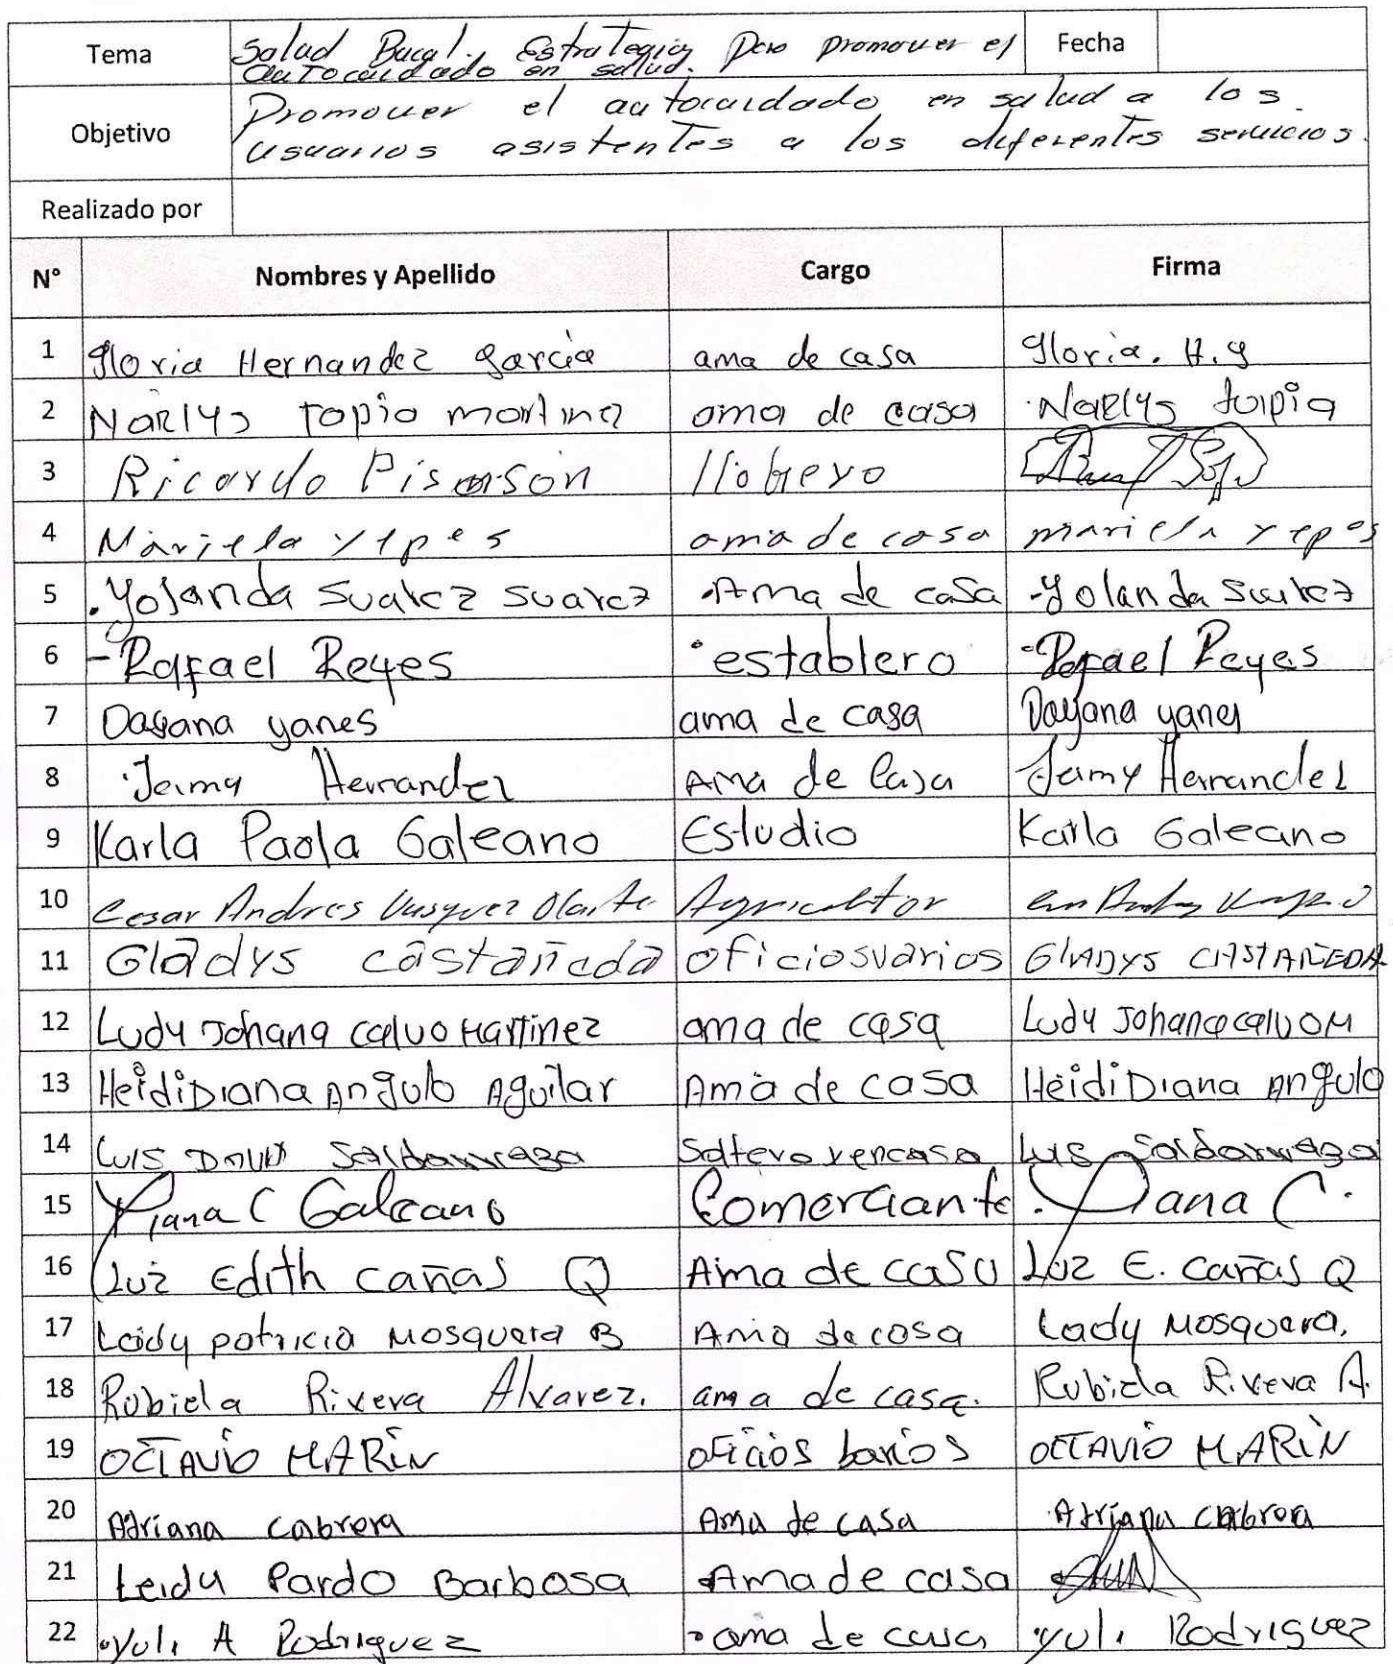 Tema Salud Bucal., Estrategia para promover el Fecha
autocuidado en salud.
Objetivo Promover el autocuidado en salud a los
usuarios asistentes a los diferentes servicios.
Realizado por
N° Nombres y Apellido Cargo Firma
1 Gloria Hernandez garcia ama de casa Gloria. H.g
2 Narlys tapia martinez ama de casa Narlys tapia
3 Ricardo
4 Mariela yepes ama de casa mariela yepes
5 Yolanda Suarez suarez Ama de casa Yolanda Suarez
6 Rafael Reyes establero Rafael Reyes
7 Dayana yanes ama de casa Dayana yanes
8 Jeimy Hernandez Ama de Casa Jeimy Hernandez
9 Karla Paola Galeano Estudio Karla Galeano
10 Cesar Andres Vasquez Olarte Agricultor
11 Gladys castañeda oficiosvarios GLADYS CASTAÑEDA
12 Ludy Johana calvo Martinez ama de casa Ludy Johana calvo M
13 Heidi Diana Angulo Aguilar Ama de casa Heidi Diana Angulo
14 Luis David Saldarriaga Luis Saldarriaga
15 Diana C Galeano Comerciante. Diana C.
16 Luz Edith cañas Q Ama de casa Luz E. cañas Q
17 Leidy patricia Mosquera B Ama de casa Lady Mosquera.
18 Rubiela Rivera Alvarez. ama de casa. Rubiela Rivera A.
19 OCTAVIO MARIN oficios barios OCTAVIO MARIN
20 Adriana cabrera Ama de casa Adriana cabrera
21 Leidy Pardo Barbosa Ama de casa
22 Yuli A Rodriguez ama de casa yuli Rodriguez